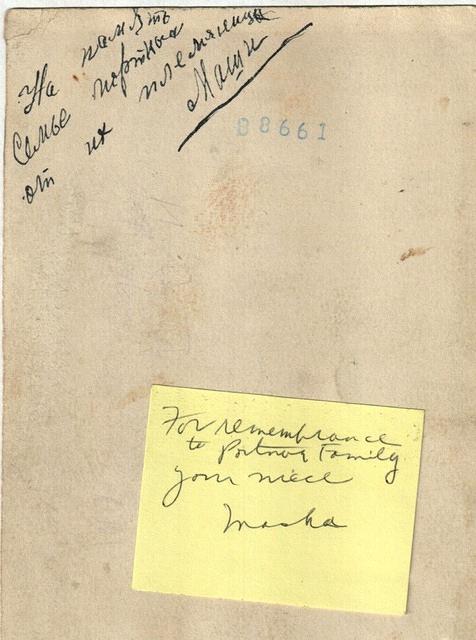 На память
семье портных
от их племяницы
Маши
88661
For remembrance
to Portnoy Family
your niece
Masha